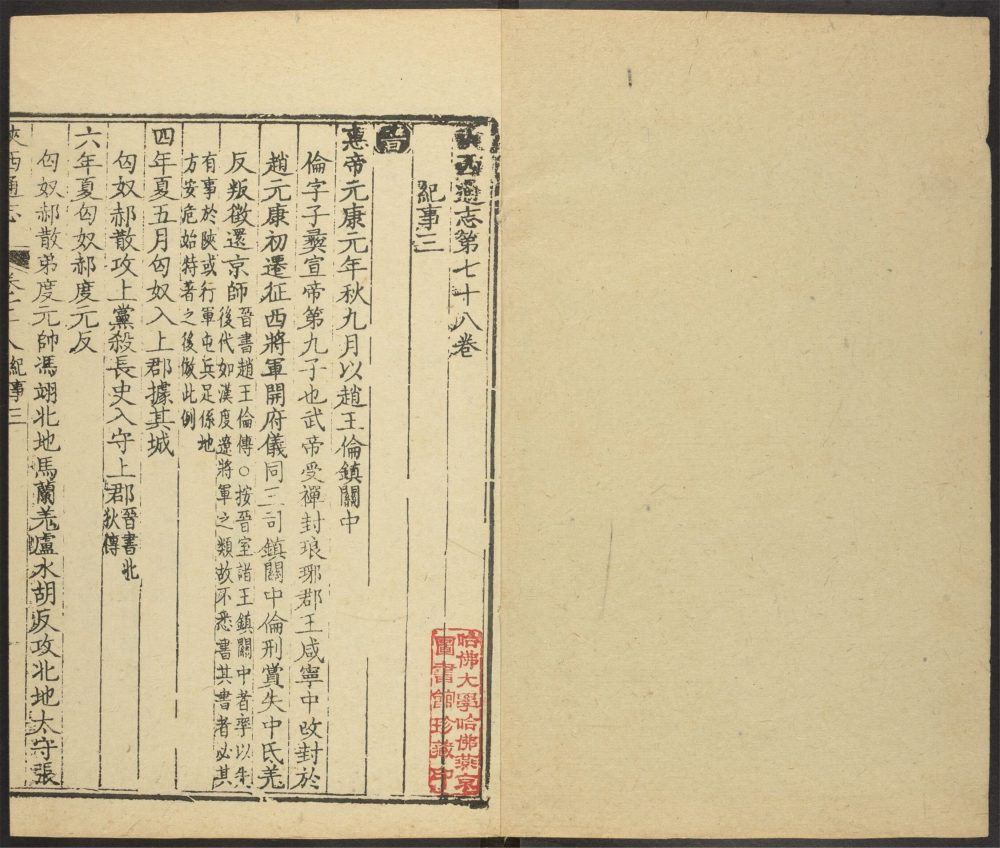 陝西通志第七十八卷
紀事三
晋
惠帝元康元年秋九月以趙王倫鎮關中
倫字子彞宣帝第九子也武帝受禪封琅琊郡王咸寧中改封於
趙元康初遷征西將軍開府儀同三司鎮關中倫刑賞失中氐羌
反叛徵還京師晉書趙王倫傳○按晉室諸王鎮關中者率以
後代如漢度遼將軍之類故不悉書其書者必其
有事於陝或行軍屯兵足係地
方安危始特著之後倣此例
四年夏五月匈奴入上郡據其城
匈奴郝散攻上黨殺長史入守上郡晉書北
狄傳
六年夏匈奴郝度元反
匈奴郝散弟度元帥馮翊北地馬蘭羌盧水胡反攻北地太守張
陝西通志
紀事三
哈佛大學哈佛燕京
圖書館珍藏印